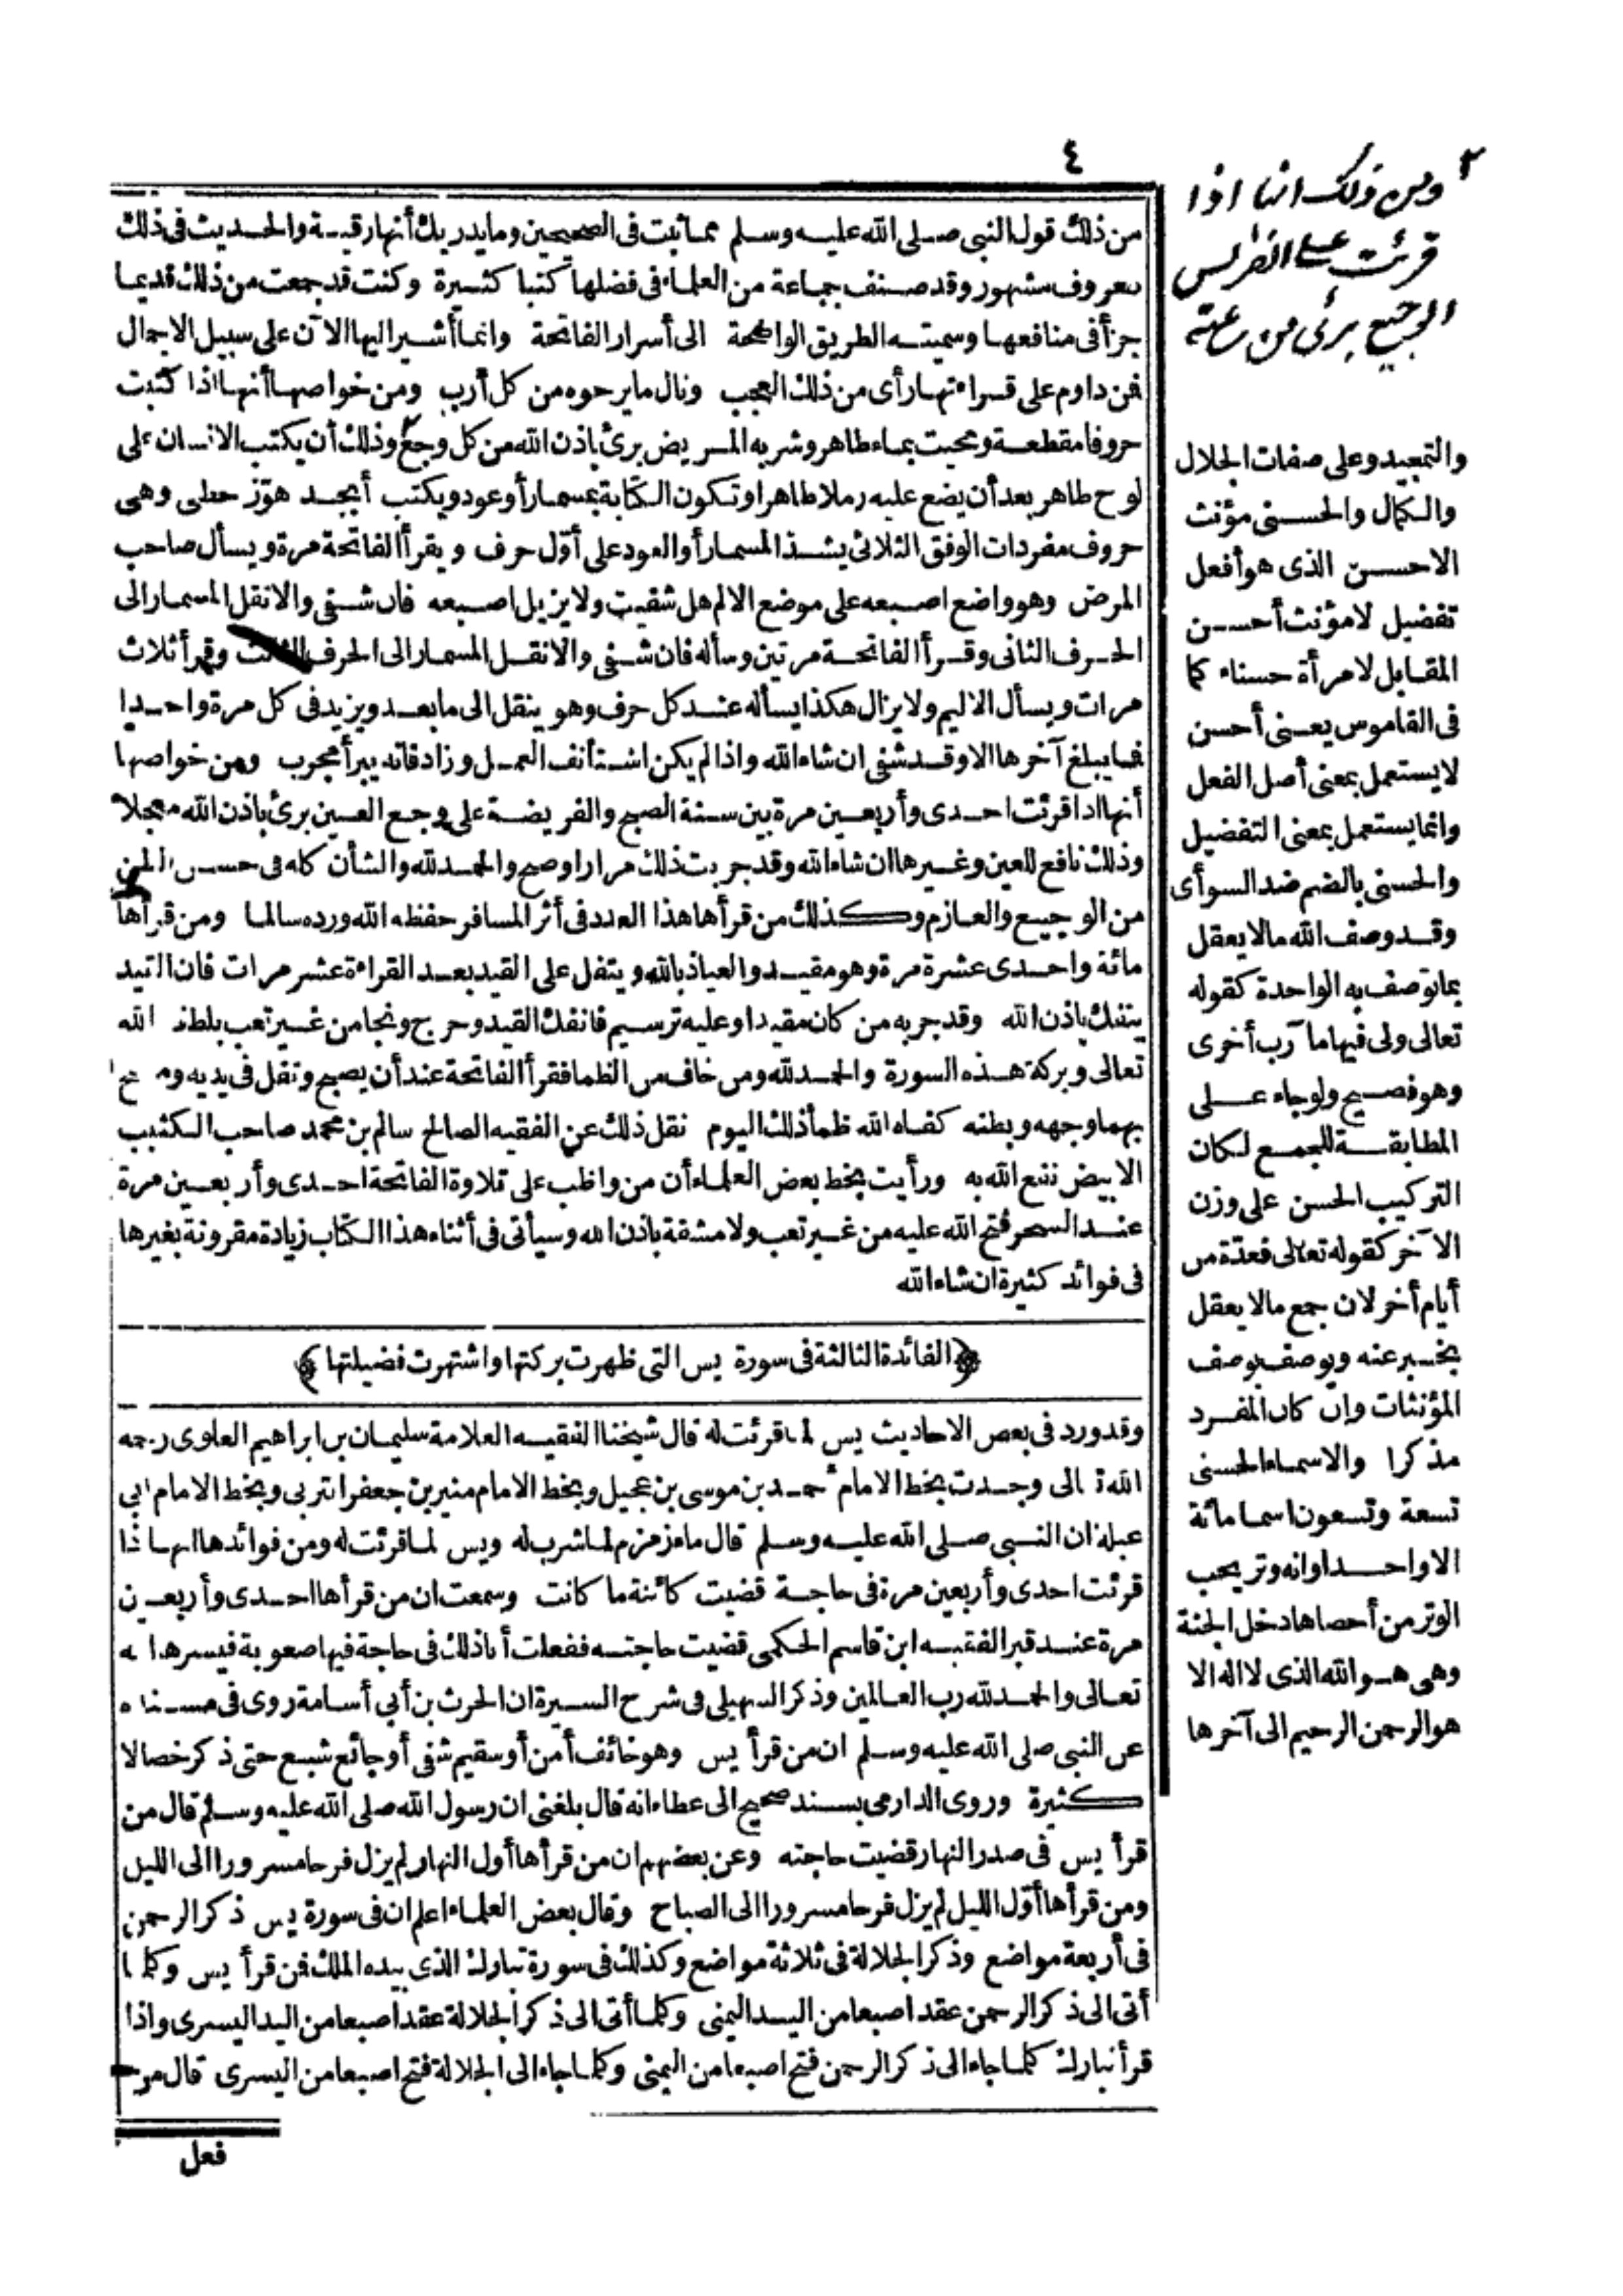 ٤
من ذلك قول النبى صلى الله عليه وسلم مما ثبت فى الصحيحين وما يدريك أنها رقية والحديث فى ذلك
معروف مشهور وقد صنف جماعة من العلماء فى فضلها كتبا كثيرة وكنت قد جمعت من ذلك قديما
جزأ فى منافعها وسميته الطريق الواضحة الى أسرار الفاتحة وانما أشير اليها الآن على سبيل الاجمال
فمن داوم على قراءتها رأى من ذلك العجب ونال ما يرجوه من كل أرب ومن خواصها أنها اذا كتبت
حروفا مقطعة ومحيت بماء طاهر وشربه المريض برئ باذن الله من كل وجع ٢ وذلك أن يكتب الانسان على
لوح طاهر بعد أن يضع عليه رملا طاهرا وتكون الكتابة بمسمار أو عود ويكتب أبجد هوّز حطى وهى
حروف مفردات الوفق الثلاثى يشد المسمار أو العود على أوّل حرف ويقرأ الفاتحة مرة ويسأل صاحب
المرض وهو واضع اصبعه على موضع الالم هل شفيت ولا يزيل اصبعه فان شفى والا نقل المسمار الى
الحرف الثانى وقرأ الفاتحة مرتين وسأله فان شفى والا نقل المسمار الى الحرف الثالث وقرأ ثلاث
مرات ويسأل الاليم ولا يزال هكذا يسأله عند كل حرف وهو ينقل الى ما بعد ويزيد فى كل مرة واحدا
فما يبلغ آخرها الا وقد شفى ان شاء الله واذا لم يكن استأنف العمل وزاد فانه يبرأ مجرب ومن خواصها
أنها اذا قرئت احدى وأربعين مرة بين سنة الصبح والفريضة على وجع العين برئ باذن الله معجلا
وذلك نافع للعين وغيرها ان شاء الله وقد جربت ذلك مرارا وصح والحمد لله والشأن كله فى حسن الظن
من الوجيع والعازم وكذلك من قرأها هذا العدد فى أثر المسافر حفظه الله ورده سالما ومن قرأها
مائة واحدى عشرة مرة وهو مقيد والعياذ بالله ويتفل على القيد بعد القراءة عشر مرات فان القيد
ينفك باذن الله وقد جربه من كان مقيدا وعليه ترسيم فانفك القيد وخرج ونجا من غير تعب بلطف الله
تعالى وبركة هذه السورة والحمد لله ومن خاف من الظما فقرأ الفاتحة عند أن يصبح وتفل فى يديه ومسح
بهما وجهه وبطنه كفاه الله ظمأ ذلك اليوم نقل ذلك عن الفقيه الصالح سالم بن محمد صاحب الكثيب
الابيض نفع الله به ورأيت بخط بعض العلماء أن من واظب على تلاوة الفاتحة احدى وأربعين مرة
عند السحر فتح الله عليه من غير تعب ولا مشقة باذن الله وسيأتى فى أثناء هذا الكتاب زيادة مقرونة بغيرها
فى فوائد كثيرة ان شاء الله
﴿الفائدة الثالثة فى سورة يس التى ظهرت بركتها واشتهرت فضيلتها﴾
وقد ورد فى بعض الاحاديث يس لما قرئت له قال شيخنا الفقيه العلامة سليمان بن ابراهيم العلوى رحمه
الله تعالى وجدت بخط الامام أحمد بن موسى بن عجيل وبخط الامام منير بن جعفر وبخط الامام أبى
ان النبى صلى الله عليه وسلم قال ماء زمزم لما شرب له ويس لما قرئت له ومن فوائدها انها اذا
قرئت احدى وأربعين مرة فى حاجة قضيت كائنة ما كانت وسمعت ان من قرأها احدى وأربعين
مرة عند قبر الفقيه ابن قاسم الحكمى قضيت حاجته ففعلت أنا ذلك فى حاجة فيها صعوبة فيسرها الله
تعالى والحمد لله رب العالمين وذكر السهيلى فى شرح السيرة ان الحرث بن أبى أسامة روى فى مسنده
عن النبى صلى الله عليه وسلم ان من قرأ يس وهو خائف أمن أو سقيم شفى أو جائع شبع حتى ذكر خصالا
كثيرة وروى الدارمى بسند صحيح الى عطاء انه قال بلغنى ان رسول الله صلى الله عليه وسلم قال من
قرأ يس فى صدر النهار قضيت حاجته وعن بعضهم ان من قرأها أول النهار لم يزل فرحا مسرورا الى الليل
ومن قرأها أوّل الليل لم يزل فرحا مسرورا الى الصباح وقال بعض العلماء اعلم ان فى سورة يس ذكر الرحمن
فى أربعة مواضع وذكر الجلالة فى ثلاثة مواضع وكذلك فى سورة تبارك الذى بيده الملك فمن قرأ يس وكلما
أتى الى ذكر الرحمن عقد اصبعا من اليد اليمنى وكلما أتى الى ذكر الجلالة عقد اصبعا من اليد اليسرى واذا
قرأ تبارك كلما جاء الى ذكر الرحمن فتح اصبعا من اليمنى وكلما جاء الى الجلالة فتح اصبعا من اليسرى قال من
فعل
٢ ومن ذلك انها اذا
قرئت على الضرس
الوجيع برئ من ساعته
والتمجيد وعلى صفات الجلال
والكمال والحسنى مؤنث
الاحسن الذى هو أفعل
تفضيل لا مؤنث أحسن
المقابل لامرأة حسناء كما
فى القاموس يعنى أحسن
لا يستعمل بمعنى أصل الفعل
وانما يستعمل بمعنى التفضيل
والحسنى بالضم ضد السوأى
وقد وصف الله ما لا يعقل
بما توصف به الواحدة كقوله
تعالى ولى فيها مآرب أخرى
وهو فصيح ولو جاء على
المطابقة للجمع لكان
التركيب الحسن على وزن
الآخر كقوله تعالى فعدّة من
أيام أخر لان جمع ما لا يعقل
يخبر عنه ويوصف بوصف
المؤنثات وان كان المفرد
مذكرا والاسماء الحسنى
تسعة وتسعون اسما مائة
الا واحدا وانه وتر يحب
الوتر من أحصاها دخل الجنة
وهى هو الله الذى لا اله الا
هو الرحمن الرحيم الى آخرها